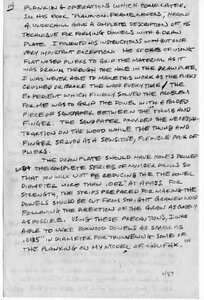 PLANKING OPERATIONS WHICH COME LATER.
IN HIS BOOK, PLANK-ON-FRAME MODELS, HAROLD
A. UNDERHILL GIVES A COMPLETE DESCRIPTION OF HIS
TECHNIQUE FOR FORMING DOWELS WITH A DRAW
PLATE. I FOLLOWED HIS INSTRUCTIONS WITH ONE
VERY IMPORTANT EXCEPTION. HE SPOKE OF USING
FLAT NOSED PLIERS TO GRIP THE MATERIAL AS IT
WAS DRAWN THROUGH THE HOLE IN THE DRAW PLATE.
I WAS NEVER ABLE TO MAKE THIS WORK AS THE PLIERS
CRUSHED OR BROKE THE WOOD EVERY TIME. THE
EXPEDIENT WHICH FINALLY SOLVED THE PROBLEM
FOR ME WAS TO GRIP THE DOWEL WITH A FOLDED
PIECE OF SANDPAPER BETWEEN THE THUMB AND
FINGER. THE SANDPAPER PROVIDED THE NECESSARY
TRACTION ON THE WOOD WHILE THE THUMB AND
FINGER SERVED AS A SENSITIVE, FLEXIBLE PAIR OF
PLIERS.
THE DRAW PLATE SHOULD HAVE HOLES DRILLED
THE COMPLETE SERIES OF NUMBER DRILLS SO
THAT YOU WILL NOT BE REDUCING THE DOWEL
DIAMETER MORE THAN .002" AT A PASS. FOR
STRENGTH, THE STRIPS PREPARED FOR MAKING THE
DOWELS SHOULD BE CUT FROM STRAIGHT GRAINED WOOD
FOLLOWING THE DIRECTION OF THE GRAIN AS CLOSELY
AS POSSIBLE. USING THESE PRECAUTIONS, I WAS
ABLE TO MAKE BOXWOOD DOWELS AS SMALL AS
IN DIAMETER FOR TRUNNELING SOME OF
THE PLANKING ON MY MODEL OF HALIFAX.